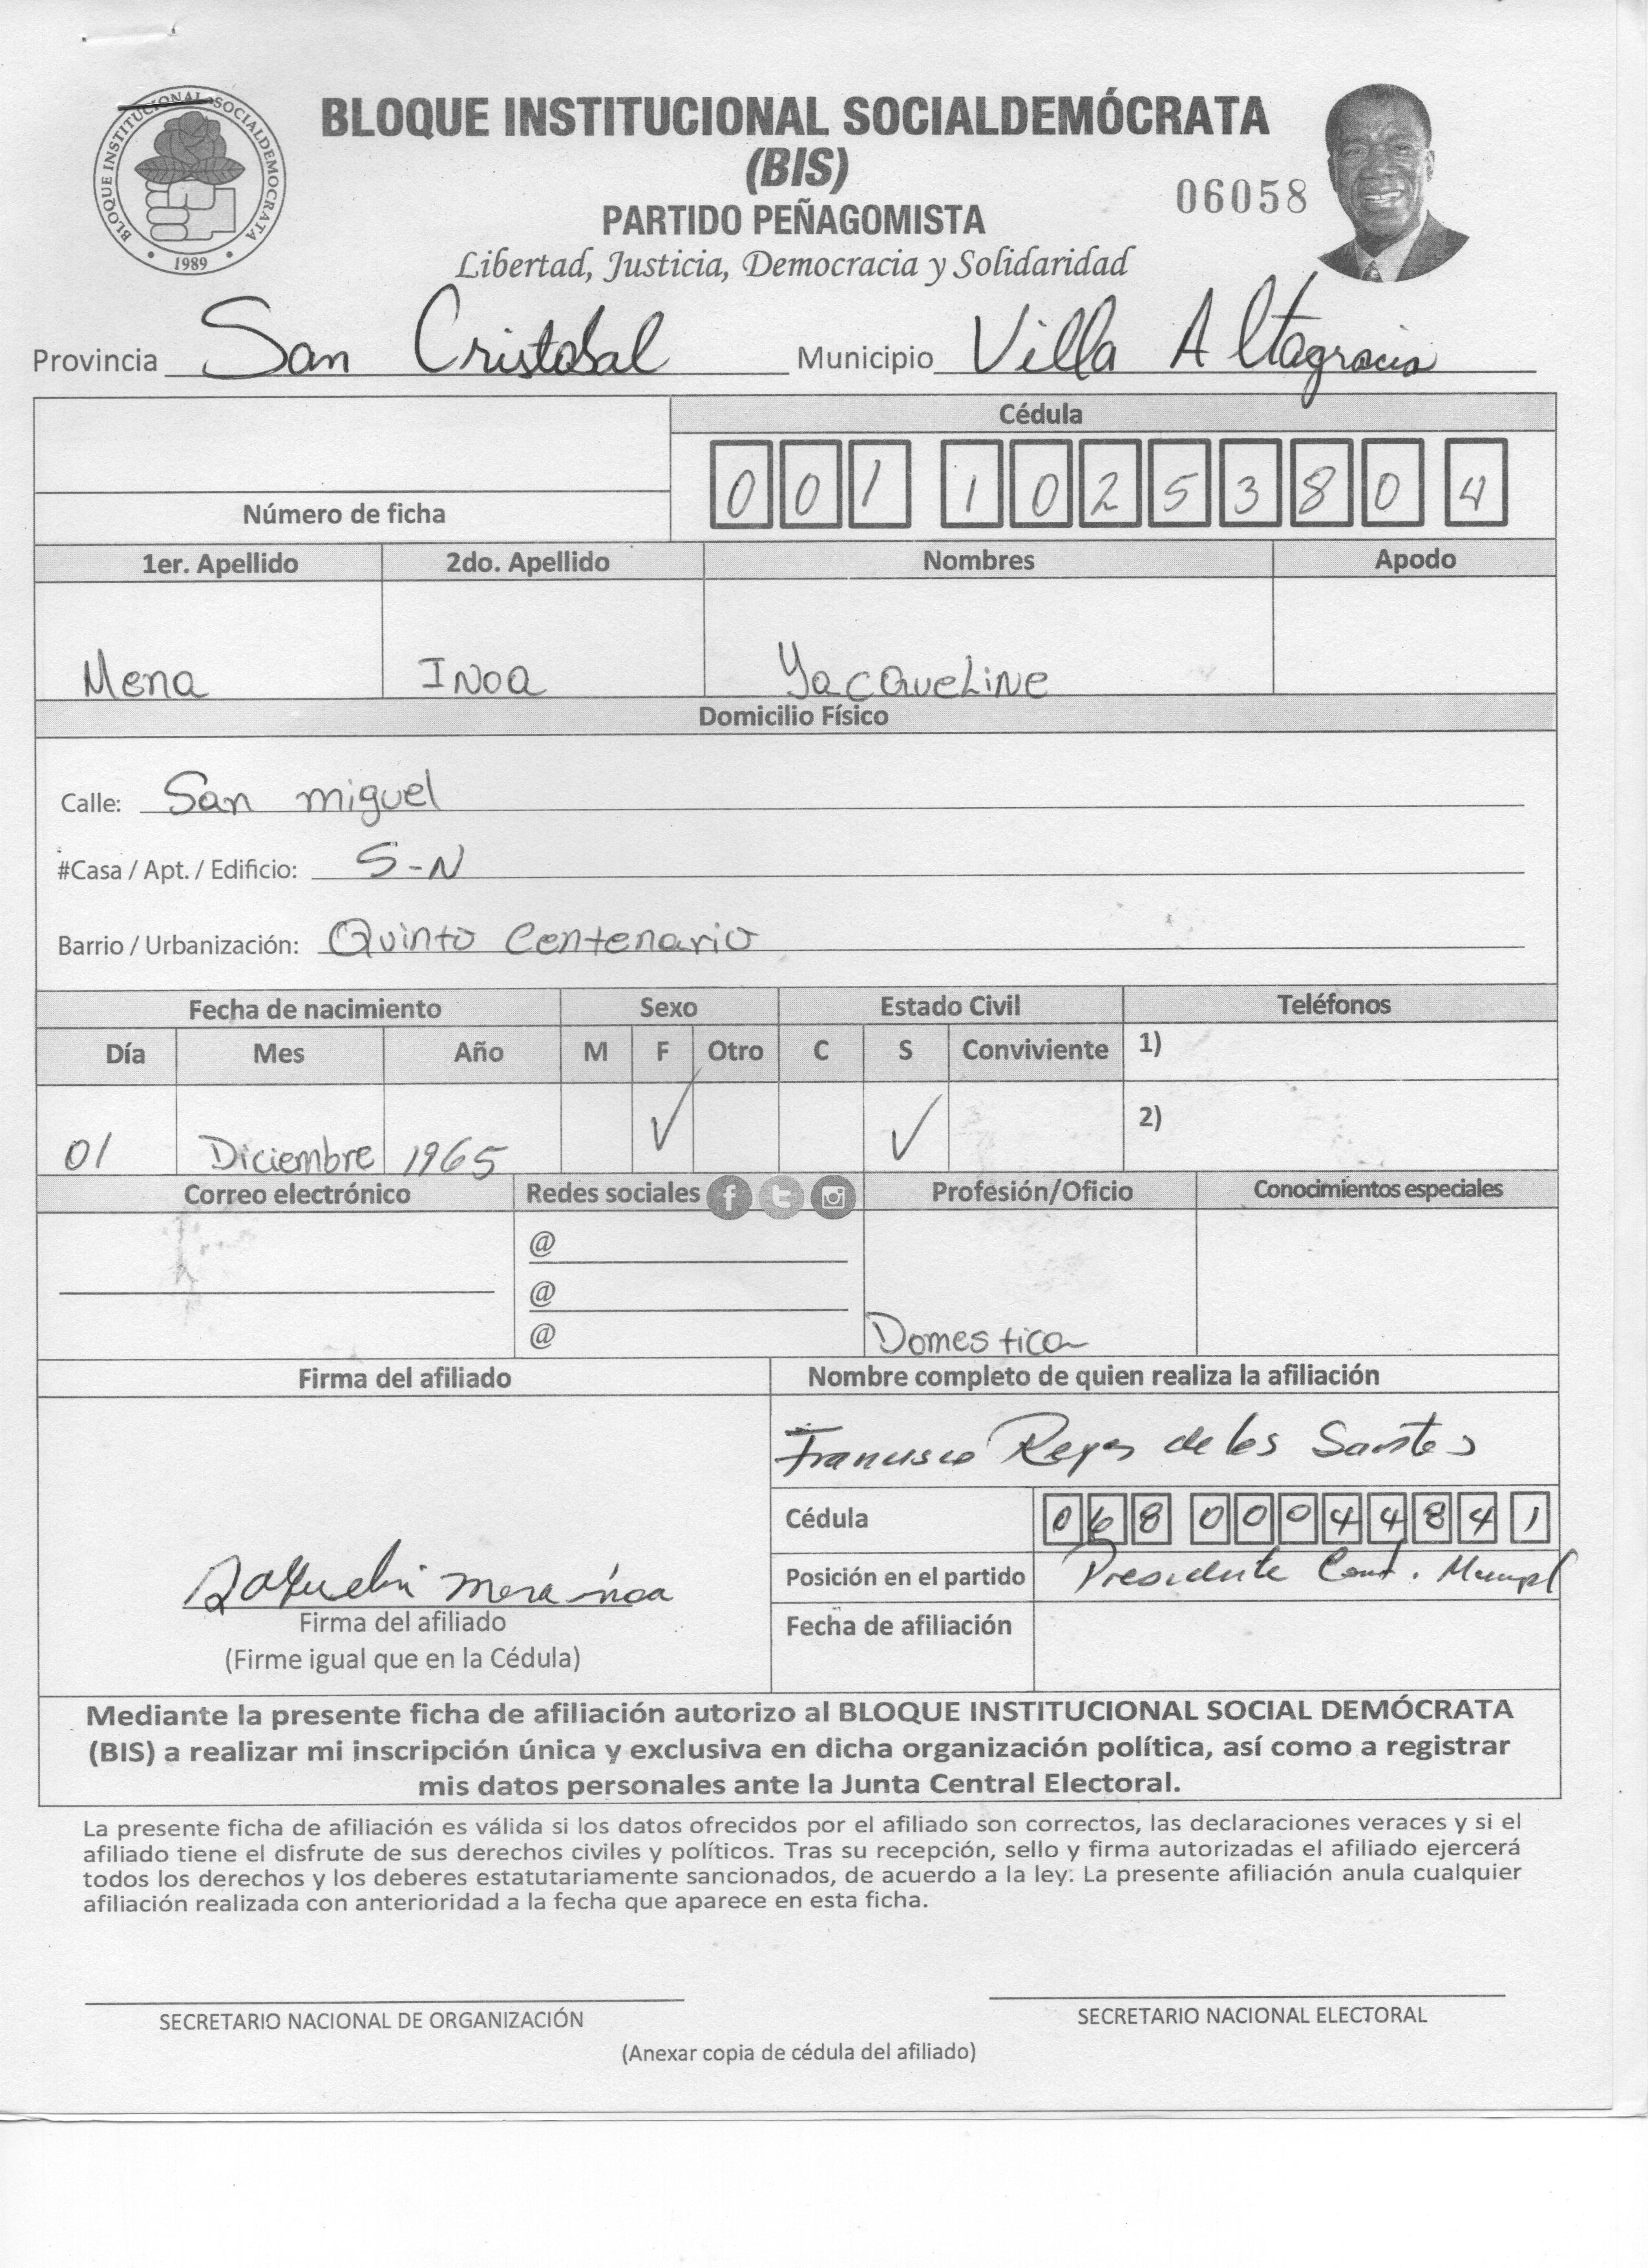 BLOQUE INSTITUCIONAL SOCIALDEMOCRATA
1989
BLOQUE INSTITUCIONAL SOCIALDEMÓCRATA
(BIS)
06058
PARTIDO PEÑAGOMISTA
Libertad, Justicia, Democracia y Solidaridad
Provincia San Cristobal Municipio Villa Altagracia
Cédula
001 1025380 4
Número de ficha
1er. Apellido 2do. Apellido Nombres Apodo
Mena INoa YacqueLiNe
Domicilio Físico
Calle: San miguel
#Casa / Apt. / Edificio: S-N
Barrio / Urbanización: Quinto Centenario
Fecha de nacimiento Sexo Estado Civil Teléfonos
Día Mes Año M F Otro C S Conviviente 1)
01 Diciembre 1965 ✓ ✓ 2)
Correo electrónico Redes sociales Profesión/Oficio Conocimientos especiales
@
@
@ Domestica
Firma del afiliado Nombre completo de quien realiza la afiliación
Francisco Reyes de los Santos
Cédula 068 0004484 1
Posición en el partido Presidente
mena inoa
Firma del afiliado
(Firme igual que en la Cédula)
Fecha de afiliación
Mediante la presente ficha de afiliación autorizo al BLOQUE INSTITUCIONAL SOCIAL DEMÓCRATA
(BIS) a realizar mi inscripción única y exclusiva en dicha organización política, así como a registrar
mis datos personales ante la Junta Central Electoral.
La presente ficha de afiliación es válida si los datos ofrecidos por el afiliado son correctos, las declaraciones veraces y si el
afiliado tiene el disfrute de sus derechos civiles y políticos. Tras su recepción, sello y firma autorizadas el afiliado ejercerá
todos los derechos y los deberes estatutariamente sancionados, de acuerdo a la ley. La presente afiliación anula cualquier
afiliación realizada con anterioridad a la fecha que aparece en esta ficha.
SECRETARIO NACIONAL DE ORGANIZACIÓN SECRETARIO NACIONAL ELECTORAL
(Anexar copia de cédula del afiliado)